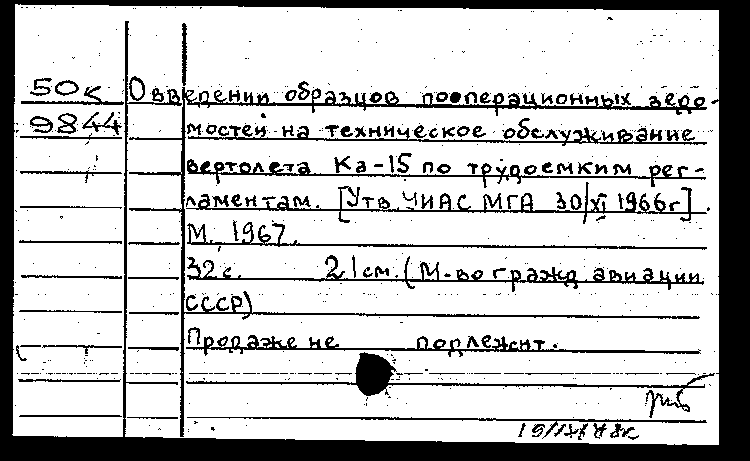 50к О введении образцов пооперационных ведо-
9844 мостей на техническое обслуживание
вертолета Ка-15 по трудоемким рег-
ламентам. [Утв. УИАС МГА 30/XI 1966г].
М., 1967.
32 с. 21 см. (М-во гражд авиации
СССР)
Продаже не подлежит.